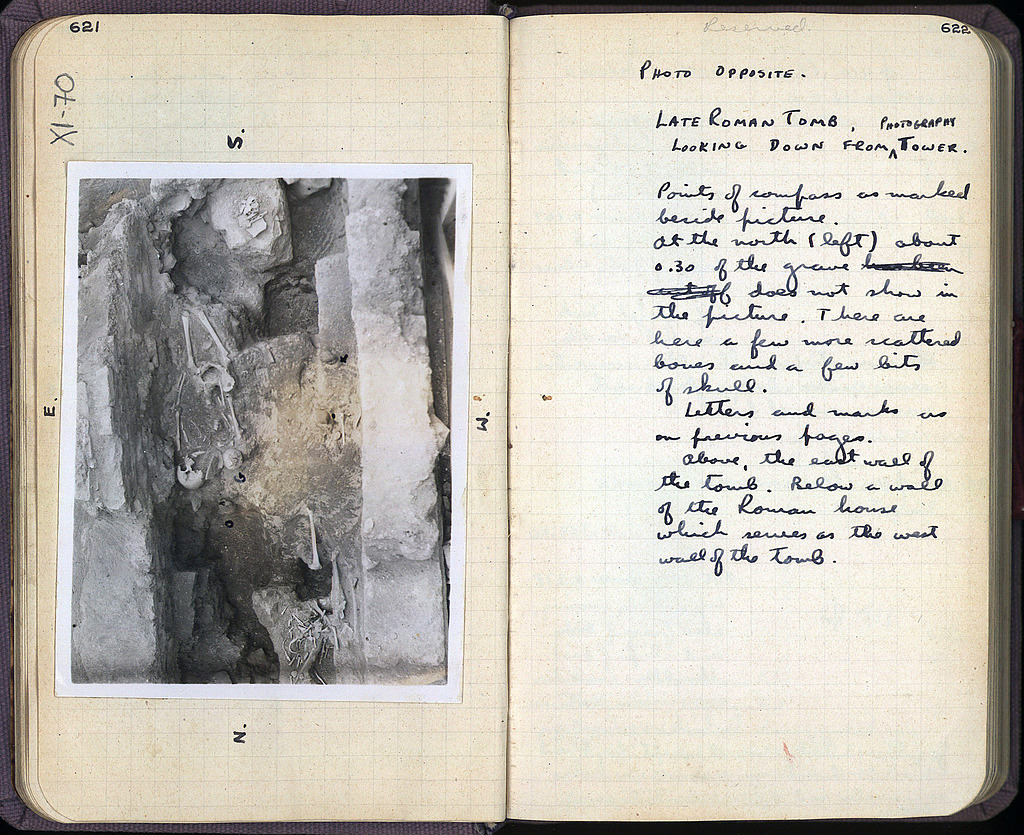 621
XI-70
S.
E.
W.
N.
622
Reserved.
PHOTO OPPOSITE.
LATE ROMAN TOMB, PHOTOGRAPHY
LOOKING DOWN FROM ^ TOWER.
Points of compass as marked
beside picture.
At the north (left) about
0.30 of the grave has been
cut off does not show in
the picture. There are
here a few more scattered
bones and a few bits
of skull.
Letters and marks as
on previous pages.
Above, the east wall of
the tomb. Below a wall
of the Roman house
which serves as the west
wall of the tomb.